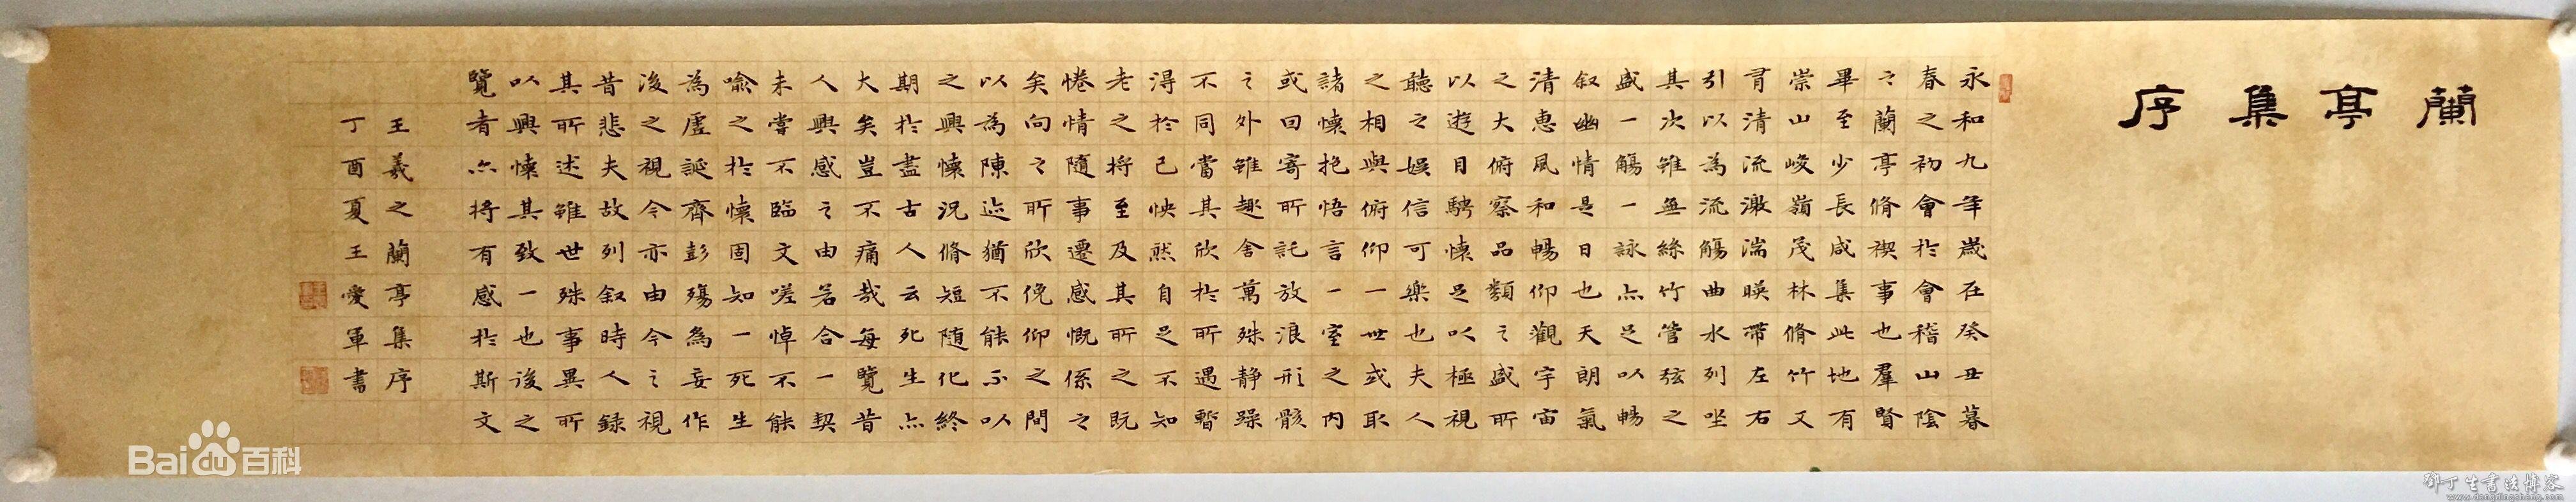 蘭亭集序
永和九年歲在癸丑暮
春之初會於會稽山陰
之蘭亭脩禊事也羣賢
畢至少長咸集此地有
崇山峻嶺茂林脩竹又
有清流激湍暎帶左右
引以為流觴曲水列坐
其次雖無絲竹管弦之
盛一觴一詠亦足以暢
叙幽情是日也天朗氣
清惠風和暢仰觀宇宙
之大俯察品類之盛所
以遊目騁懷足以極視
聽之娛信可樂也夫人
之相與俯仰一世或取
諸懷抱悟言一室之内
或因寄所託放浪形骸
之外雖趣舍萬殊静躁
不同當其欣於所遇暫
得於己怏然自足不知
老之將至及其所之既
惓情隨事遷感慨係之
矣向之所欣俛仰之間
以為陳迹猶不能不以
之興懷況脩短随化終
期於盡古人云死生亦
大矣豈不痛哉每覽昔
人興感之由若合一契
未嘗不臨文嗟悼不能
喻之於懷固知一死生
為虛誕齊彭殤為妄作
後之視今亦由今之視
昔悲夫故列叙時人録
其所述雖世殊事異所
以興懷其致一也後之
覽者亦將有感於斯文
王羲之蘭亭集序
丁酉夏王愛軍書
Bai du 百科
鄧丁生書法博客
www.dengdingsheng.com